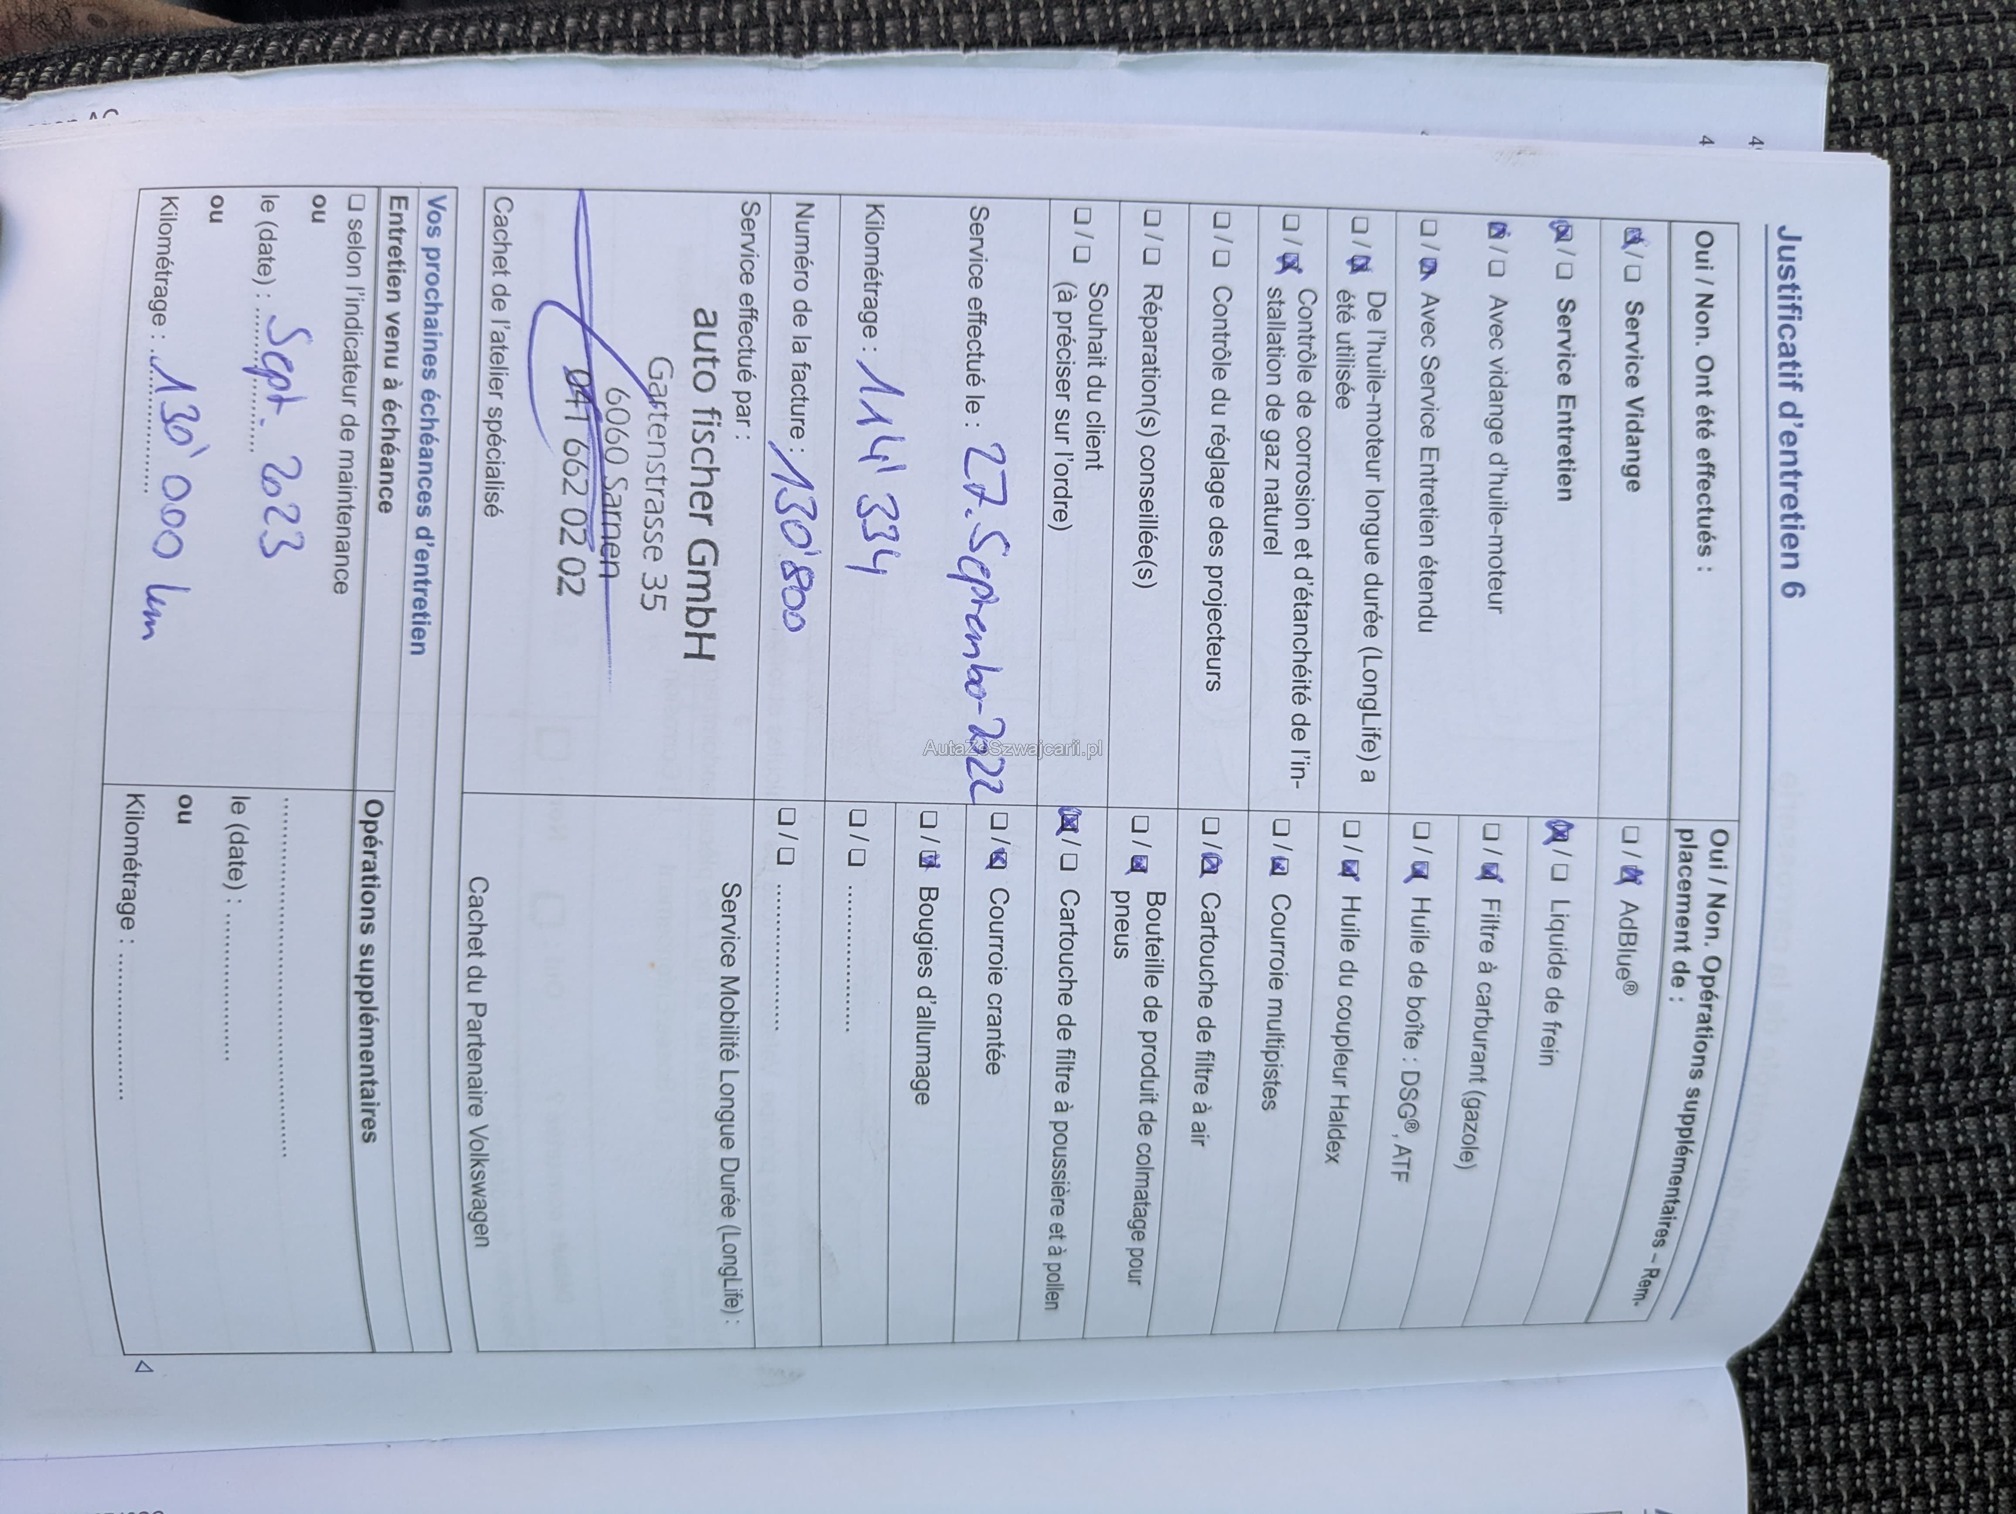 Justificatif d'entretien 6
Oui / Non. Ont été effectués :
☒ / ☐ Service Vidange
☒ / ☐ Service Entretien
☒ / ☐ Avec vidange d'huile-moteur
☐ / ☒ Avec Service Entretien étendu
☐ / ☒ De l'huile-moteur longue durée (LongLife) a
été utilisée
☐ / ☒ Contrôle de corrosion et d'étanchéité de l'in-
stallation de gaz naturel
☐ / ☐ Contrôle du réglage des projecteurs
☐ / ☐ Réparation(s) conseillée(s)
☐ / ☐ Souhait du client
(à préciser sur l'ordre)
Service effectué le : 27. September 2022
Kilométrage : 114'334
Numéro de la facture : 130'800
Service effectué par :
auto fischer GmbH
Gartenstrasse 35
6060 Sarnen
041 662 02 02
Cachet de l'atelier spécialisé
Oui / Non. Opérations supplémentaires – Rem-
placement de :
☐ / ☒ AdBlue®
☒ / ☐ Liquide de frein
☐ / ☒ Filtre à carburant (gazole)
☐ / ☒ Huile de boîte : DSG®, ATF
☐ / ☒ Huile du coupleur Haldex
☐ / ☒ Courroie multipistes
☐ / ☒ Cartouche de filtre à air
☐ / ☒ Bouteille de produit de colmatage pour
pneus
☒ / ☐ Cartouche de filtre à poussière et à pollen
☐ / ☒ Courroie crantée
☐ / ☒ Bougies d'allumage
☐ / ☐ ................
☐ / ☐ ................
Service Mobilité Longue Durée (LongLife) :
Cachet du Partenaire Volkswagen
Vos prochaines échéances d'entretien
Entretien venu à échéance
☐ selon l'indicateur de maintenance
ou
le (date) : Sept. 2023
ou
Kilométrage : 130'000 km
Opérations supplémentaires
................................
le (date) : ................
ou
Kilométrage : ................
AutaZeSzwajcarii.pl